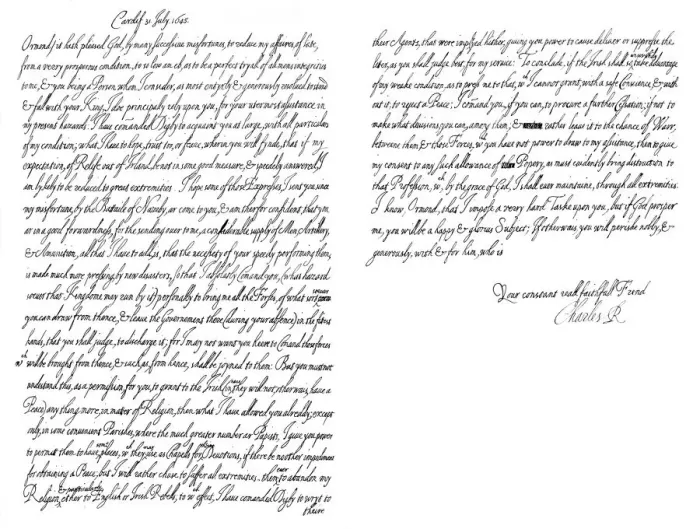 Cardif 31 July 1645.
Ormond/ it hath pleased God, by many successive misfortunes, to reduce my affaires, of late,
from a verry prosperous condition, to so low an eb, as to be a perfect tryall of all mens integrities
to me; & you being a Person whom I consider, as most entyrly & generously resolved to stand
& fall with your King, I doe principally rely upon you, for your utermost assistance in
my present hazards: I have comanded Digby to acquaint you at large, with all particulars
of my condition; what I have to hope, trust too, or feare, wherin you will fynde, that if my
expectation, of Relife out of Irland, be not in some good measure, & speedely answered, I
am lykly to be reduced to great extremities. I hope some of those Expresses, I sent you since
my misfortune, by the Battaile of Nazeby, ar come to you, & am therfor confident, that you
ar in a good forwardness, for the sending over to me, a considerable supply of Men, Artillery,
& Amunition, all that I have to add, is, that the necessity of your speedy performing them,
is made much more pressing, by new disasters, so that I absolutly Comand you, (what hazard
soever that Kingdome may run by it) personally to bring me all the Forses, of what sort soever
you can draw from thence, & leave the Governement there (during your absence) in the fittest
hands, that you shall judge, to discharge it; for I may not want you heere to Comand those forces
wch will be brought from thence, & such as, from hence, shall be joyned to them: But you must not
understand this, as a permission, for you, to grant to the Irish (in case they will not, otherwais, have a
Peace) any thing more, in mater of Religion, than what I have allowed you already; except
only, in some convenient Parishes, where the much greater number ar Papists, I give you power
to permitt them to have some places, wch they may use as Chapels for theire Devotions, if there be no other impediment
for obtaining a Peace; but I will rather chuse to suffer all extremities, then ever to abandon my
Religion, & particularly ether to English or Irish Rebels; to wch effect, I have comanded Digby to wryt to
theire
their Agents, that were imployed hither, giving you power to cause deliver or suppresse the
letter, as you shall judge best, for my service: To conclude, if the Irish shall so unworthily take advantage
of my weake condition, as to press me to that, wch I cannot grant, with a safe Conscience, & with
out it, to reject a Peace; I comand you, if you can, to procure a further Cessation; if not, to
make what devisions, you can, among them, & rather leave it to the chance of Warr,
betweene them & those Forces, wch you have not power to draw to my assistance, then to give
my consent to any such allowance of Popery, as must evidently bring distruction to
that Profession, wch, by the grace of God, I shall ever maintaine, through all extremities:
I know, Ormond, that I impose a verry hard Taske upon you, but if God prosper
me, you will be a happy & glorius Subject; If otherwais, you will perishe nobly, &
generously, with & for him, who is
Your constant reall faithfull Frend
Charles R